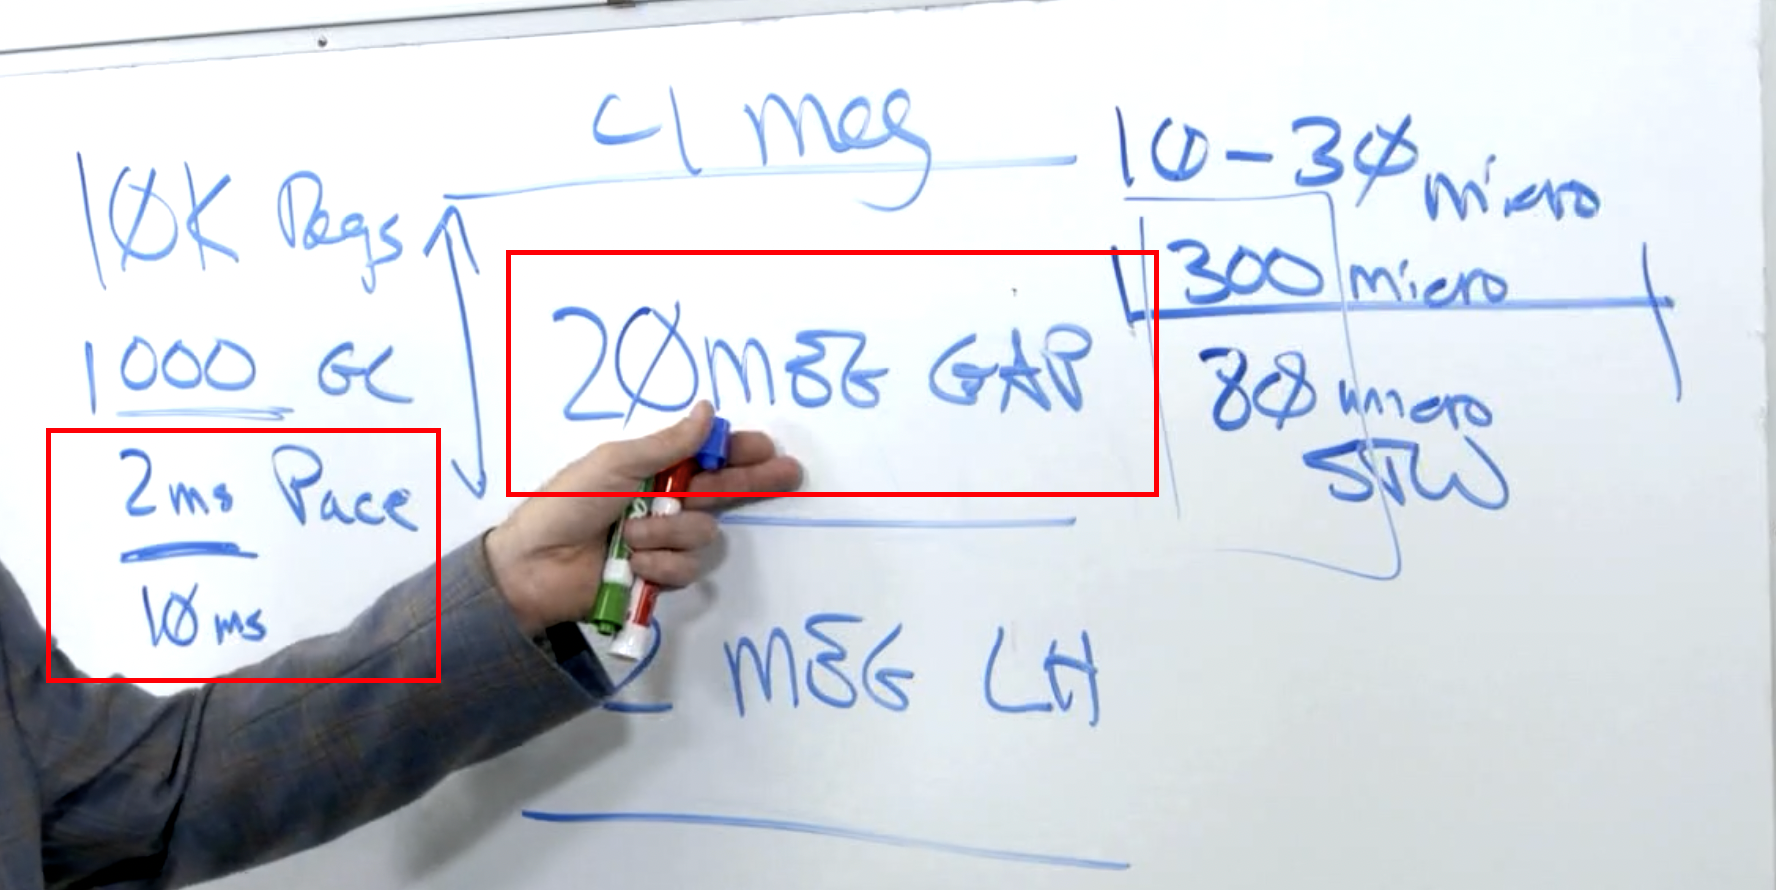 4 meg
10K Reqs
1000 GC
2ms Pace
10ms
20MEG GAP
2 MEG LH
10-30 micro
300 micro
80 micro
STW